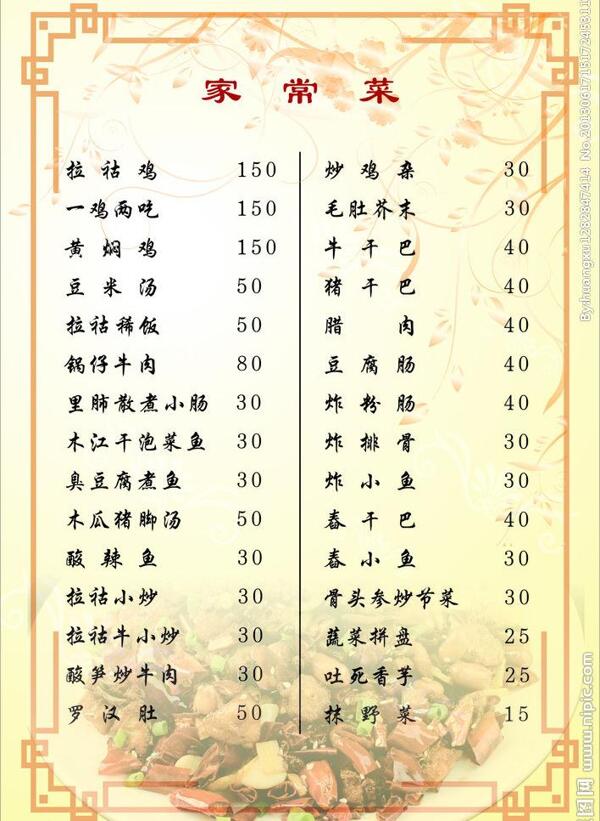 家常菜
拉祜鸡 150
一鸡两吃 150
黄焖鸡 150
豆米汤 50
拉祜稀饭 50
锅仔牛肉 80
里肺散煮小肠 30
木江干泡菜鱼 30
臭豆腐煮鱼 30
木瓜猪脚汤 50
酸辣鱼 30
拉祜小炒 30
拉祜牛小炒 30
酸笋炒牛肉 30
罗汉肚 50
炒鸡杂 30
毛肚芥末 30
牛干巴 40
猪干巴 40
腊肉 40
豆腐肠 40
炸粉肠 40
炸排骨 30
炸小鱼 30
舂干巴 40
舂小鱼 30
骨头参炒节菜 30
蔬菜拼盘 25
吐死香芋 25
抹野菜 15
By:huangxu1282847414 No.20130617151724831
www.nipic.com